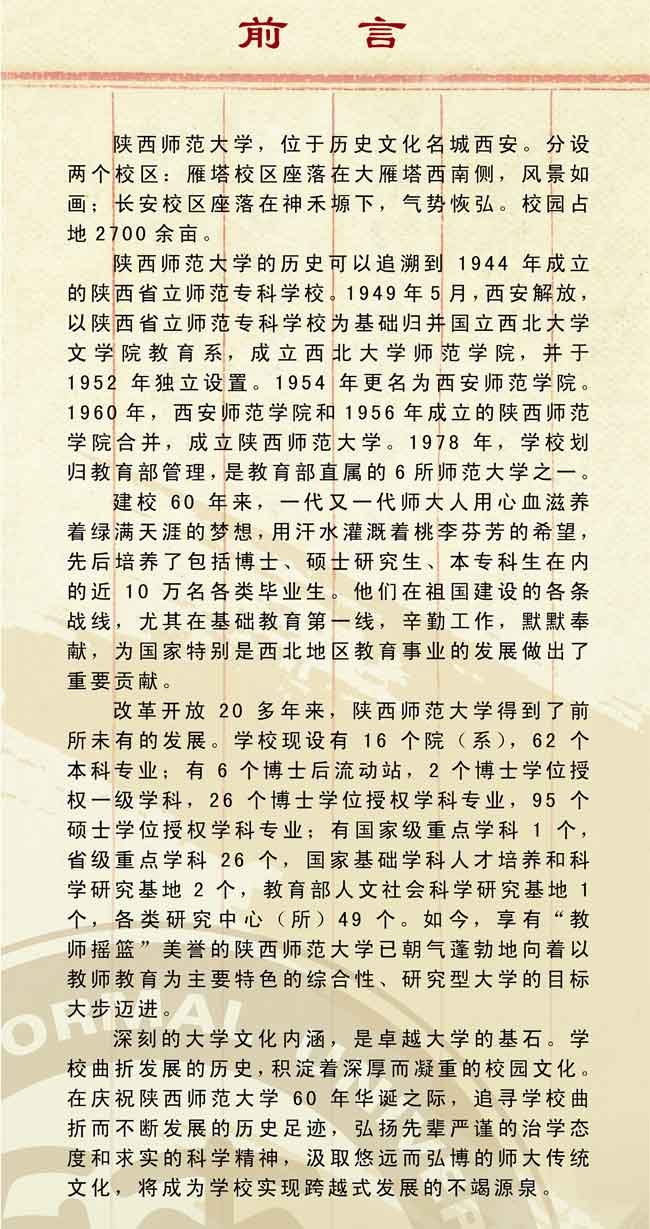 前 言
陕西师范大学，位于历史文化名城西安。分设
两个校区：雁塔校区座落在大雁塔西南侧，风景如
画；长安校区座落在神禾塬下，气势恢弘。校园占
地2700余亩。
陕西师范大学的历史可以追溯到 1944 年成立
的陕西省立师范专科学校。1949年5月，西安解放，
以陕西省立师范专科学校为基础归并国立西北大学
文学院教育系，成立西北大学师范学院，并于
1952 年独立设置。1954 年更名为西安师范学院。
1960年，西安师范学院和1956年成立的陕西师范
学院合并，成立陕西师范大学。1978 年，学校划
归教育部管理，是教育部直属的6所师范大学之一。
建校 60 年来，一代又一代师大人用心血滋养
着绿满天涯的梦想，用汗水灌溉着桃李芬芳的希望，
先后培养了包括博士、硕士研究生、本专科生在内
的近 10 万名各类毕业生。他们在祖国建设的各条
战线，尤其在基础教育第一线，辛勤工作，默默奉
献，为国家特别是西北地区教育事业的发展做出了
重要贡献。
改革开放 20 多年来，陕西师范大学得到了前
所未有的发展。学校现设有 16 个院（系），62 个
本科专业；有 6 个博士后流动站，2 个博士学位授
权一级学科，26 个博士学位授权学科专业，95 个
硕士学位授权学科专业；有国家级重点学科 1 个，
省级重点学科 26 个，国家基础学科人才培养和科
学研究基地 2 个，教育部人文社会科学研究基地 1
个，各类研究中心（所）49 个。如今，享有“教
师摇篮”美誉的陕西师范大学已朝气蓬勃地向着以
教师教育为主要特色的综合性、研究型大学的目标
大步迈进。
深刻的大学文化内涵，是卓越大学的基石。学
校曲折发展的历史，积淀着深厚而凝重的校园文化。
在庆祝陕西师范大学 60 年华诞之际，追寻学校曲
折而不断发展的历史足迹，弘扬先辈严谨的治学态
度和求实的科学精神，汲取悠远而弘博的师大传统
文化，将成为学校实现跨越式发展的不竭源泉。
ORMAL UNIVER